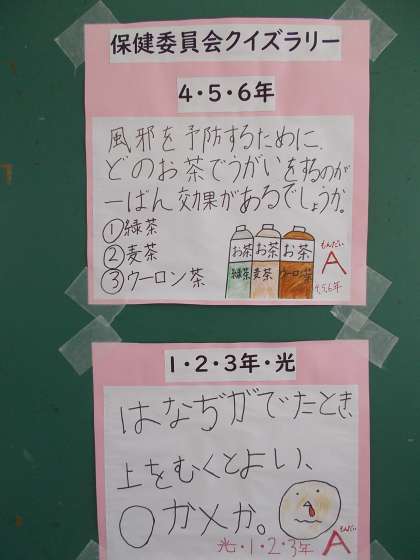 保健委員会クイズラリー
4・5・6年
風邪を予防するために、
どのお茶でうがいをするのが
一ばん効果があるでしょうか。
①緑茶
②麦茶
③ウーロン茶
お茶 お茶 お茶
緑茶 麦茶 ウーロン茶
もんだい
A
4,5,6年
1・2・3年・光
はなぢがでたとき
上をむくとよい、
○か×か。
もんだい
A
光・1・2・3年